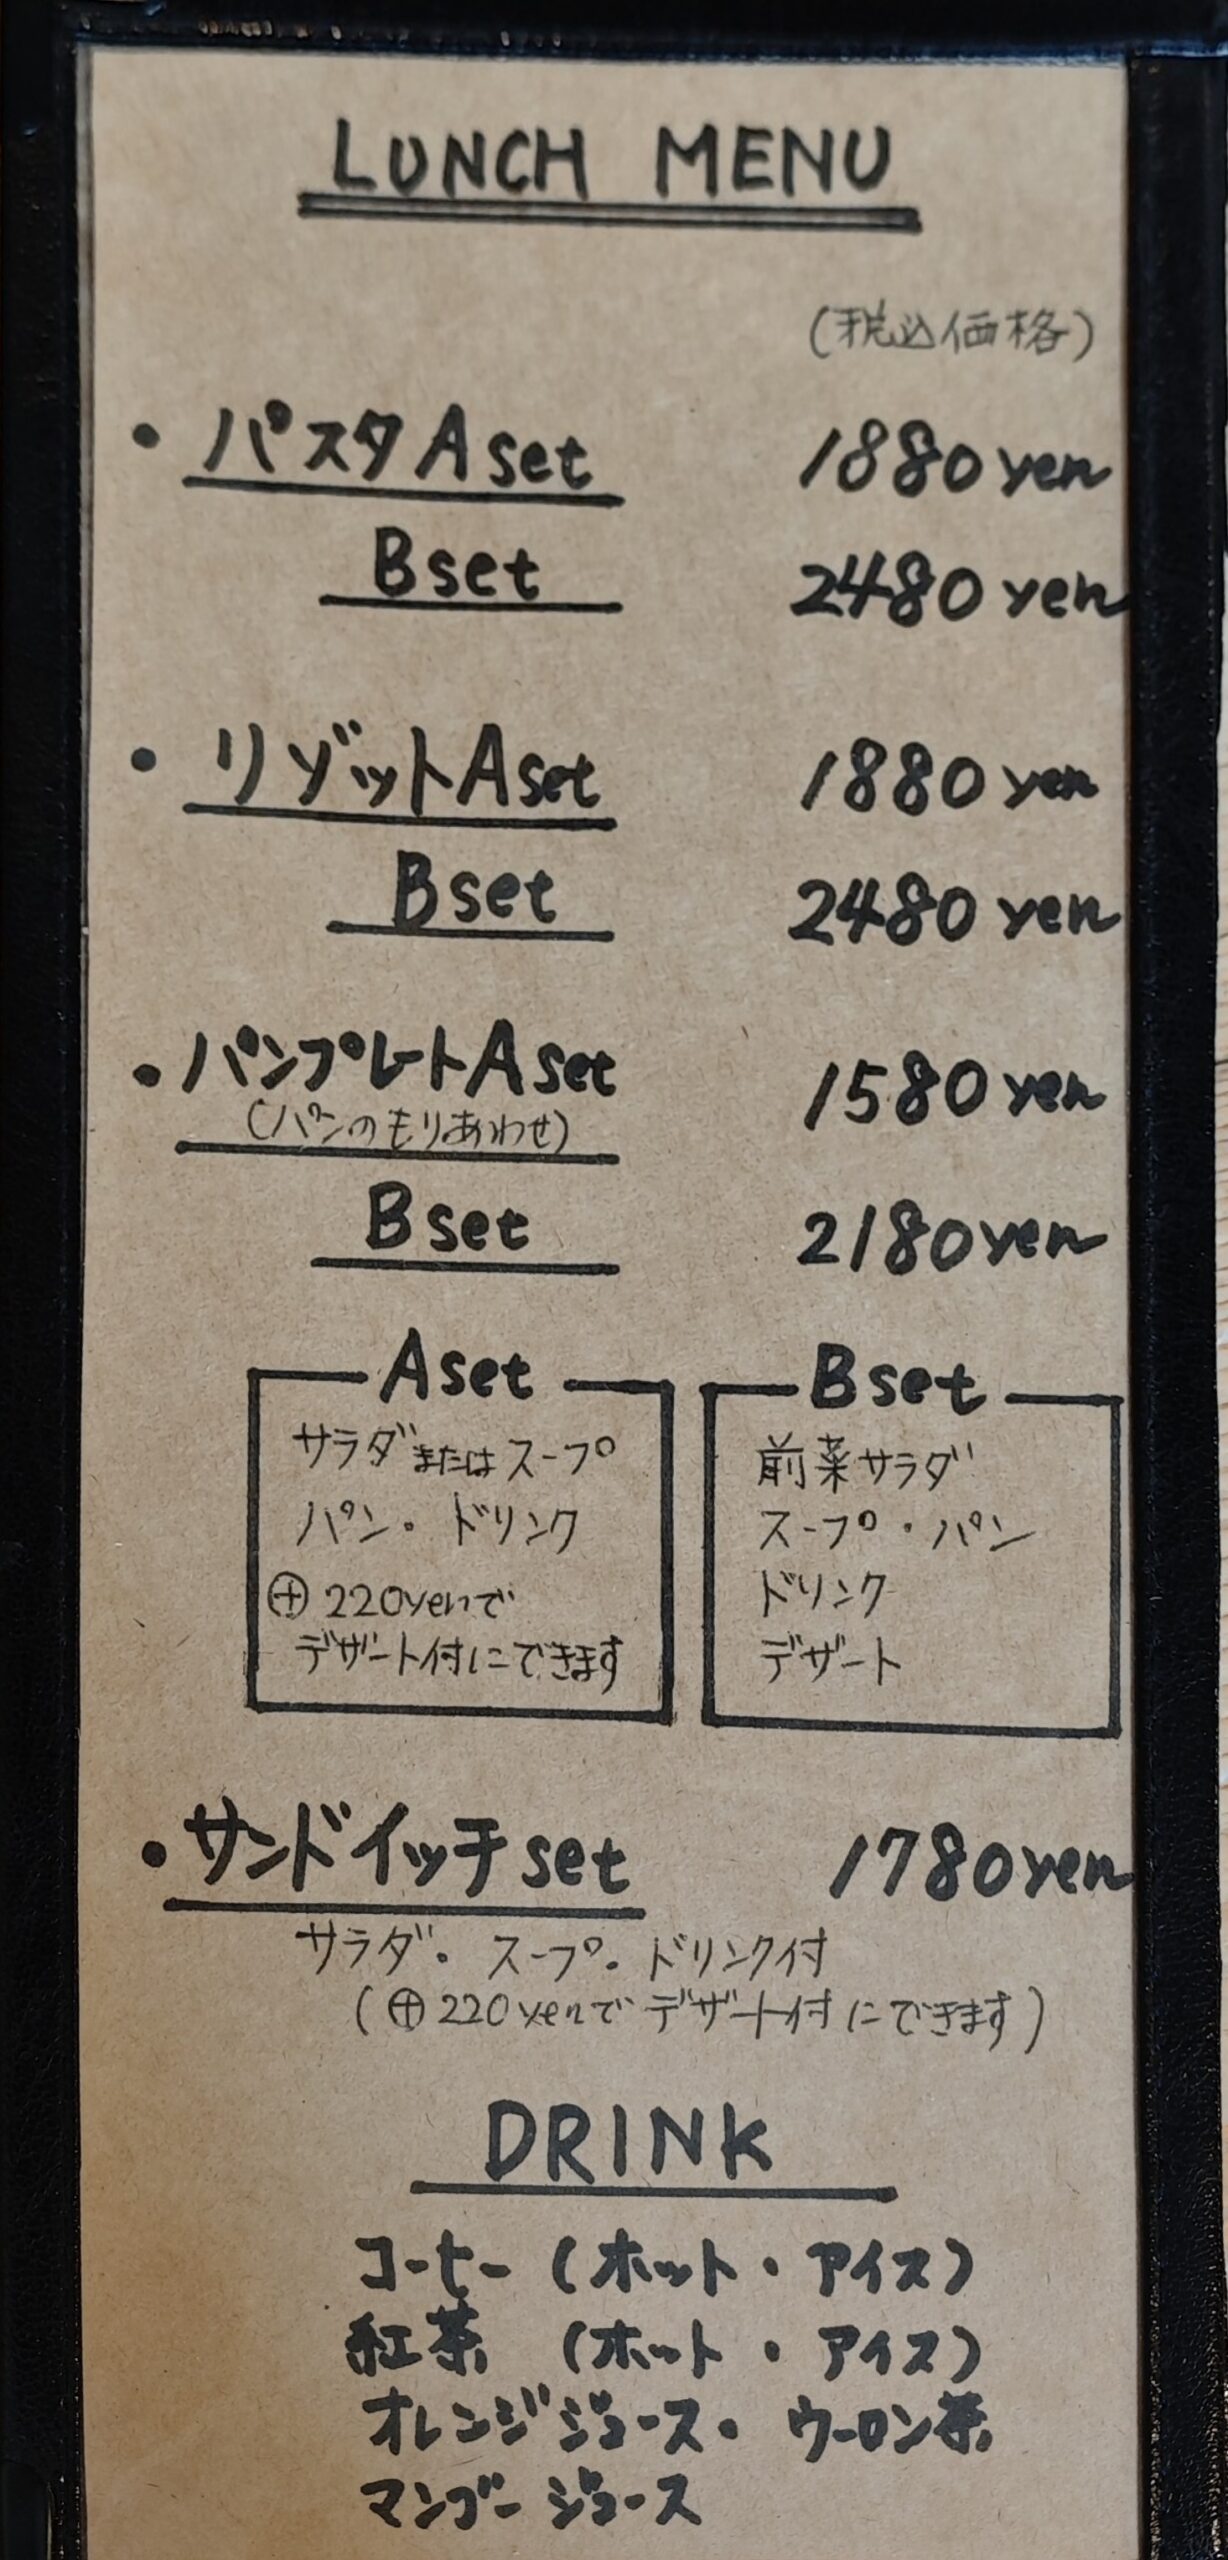 LUNCH MENU
(税込価格)
・パスタ A set 1880 yen
B set 2480 yen
・リゾット A set 1880 yen
B set 2480 yen
・パンプレート A set 1580 yen
(パンのもりあわせ)
B set 2180 yen
A set
サラダまたはスープ
パン・ドリンク
⊕220yenで
デザート付にできます
B set
前菜サラダ
スープ・パン
ドリンク
デザート
・サンドイッチ set 1780 yen
サラダ・スープ・ドリンク付
(⊕220yenでデザート付にできます)
DRINK
コーヒー (ホット・アイス)
紅茶 (ホット・アイス)
オレンジジュース・ウーロン茶
マンゴージュース